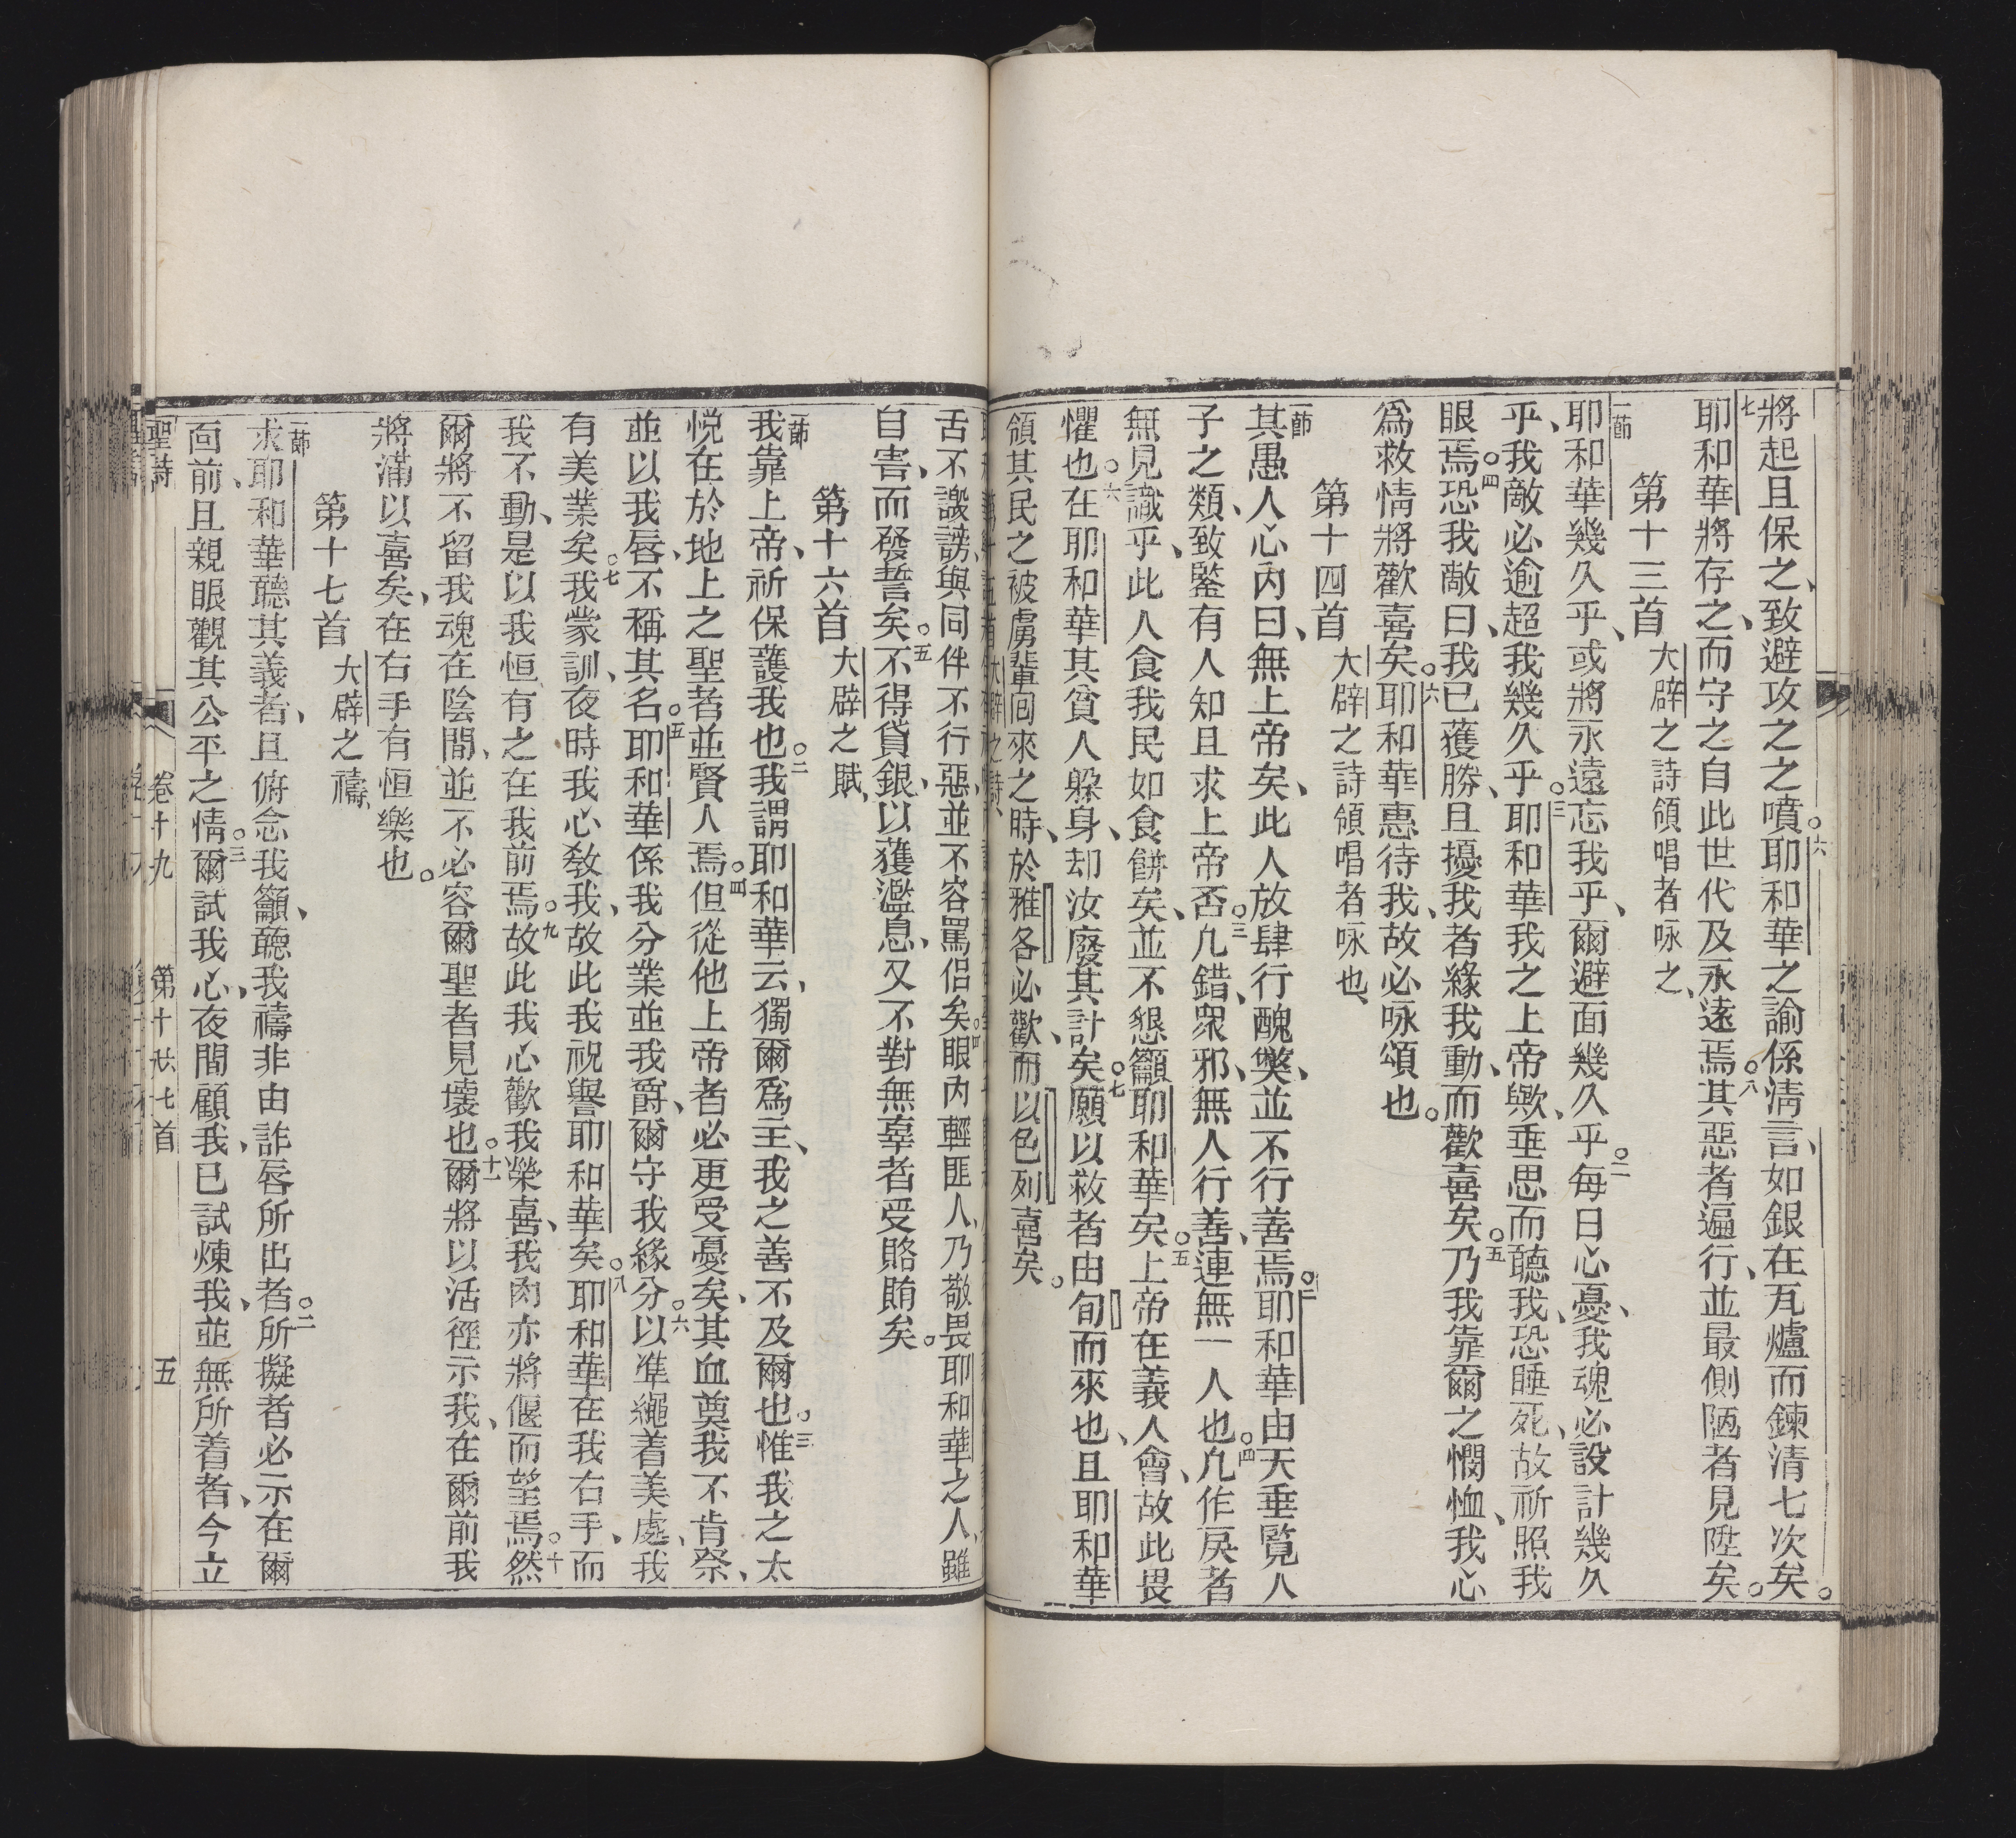 將起且保之、致避攻之之噴。六耶和華之諭係清言、如銀在瓦爐而鍊清七次矣。
七耶和華將存之、而守之自此世代及永遠焉。八其惡者遍行、並最側陋者見陞矣。
第十三首 大辟之詩領唱者咏之、
一節耶和華幾久乎、或將永遠忘我乎、爾避面幾久乎。二每日心憂、我魂必設計幾久
乎、我敵必逾超我幾久乎。三耶和華我之上帝歟、垂思而聽我、恐睡死、故祈照我
眼焉。四恐我敵曰、我已獲勝、且擾我者緣我動、而歡喜矣。五乃我靠爾之憫恤、我心
為救情將歡喜矣。六耶和華惠待我、故必咏頌也。
第十四首 大辟之詩領唱者咏也、
一節其愚人心內曰、無上帝矣、此人放肆行醜獘、並不行善焉。二耶和華由天垂覧人
子之類、致鑒有人知且求上帝否。三凡錯、眾邪、無人行善、連無一人也。四凡作戾者
無見識乎、此人食我民如食餅矣、並不懇籲耶和華矣。五上帝在義人會、故此畏
懼也。六在耶和華其貧人躲身、却汝廢其計矣。七願以救者由旬而來也、且耶和華
領其民之被虜輩囘來之時、於雅各必歡、而以色列喜矣。
舌不譭謗、與同伴不行惡、並不容罵侶矣。四眼內輕匪人、乃敬畏耶和華之人、雖
自害、而發誓矣。五不得貸銀、以獲濫息、又不對無辜者受賂賄矣。
第十六首 大辟之賦、
一節我靠上帝、祈保護我也。二我謂耶和華云、獨爾為主、我之善不及爾也。三惟我之太
悅在於地上之聖者並賢人焉。四但從他上帝者必更受憂矣、其血奠我不肯祭、
並以我唇、不稱其名。五耶和華係我分業並我爵、爾守我緣分。六以準繩着美處、我
有美業矣。七我蒙訓、夜時我心教我、故此我祝譽耶和華矣。八耶和華在我右手、而
我不動、是以我恒有之在我前焉。九故此我心歡我榮喜、我肉亦將偃而望焉。十然
爾將不留我魂在陰間、並不必容爾聖者見壞也。十一爾將以活徑示我、在爾前我
將滿以喜矣、在右手有恒樂也。
第十七首 大辟之禱、
一節求耶和華聽其義者、且俯念我籲、聽我禱非由詐唇所出者。二所擬者必示在爾
面前、且親眼觀其公平之情。三爾試我心、夜間顧我、已試煉我、並無所着者、今立
聖詩 卷十九 第十六七首 五